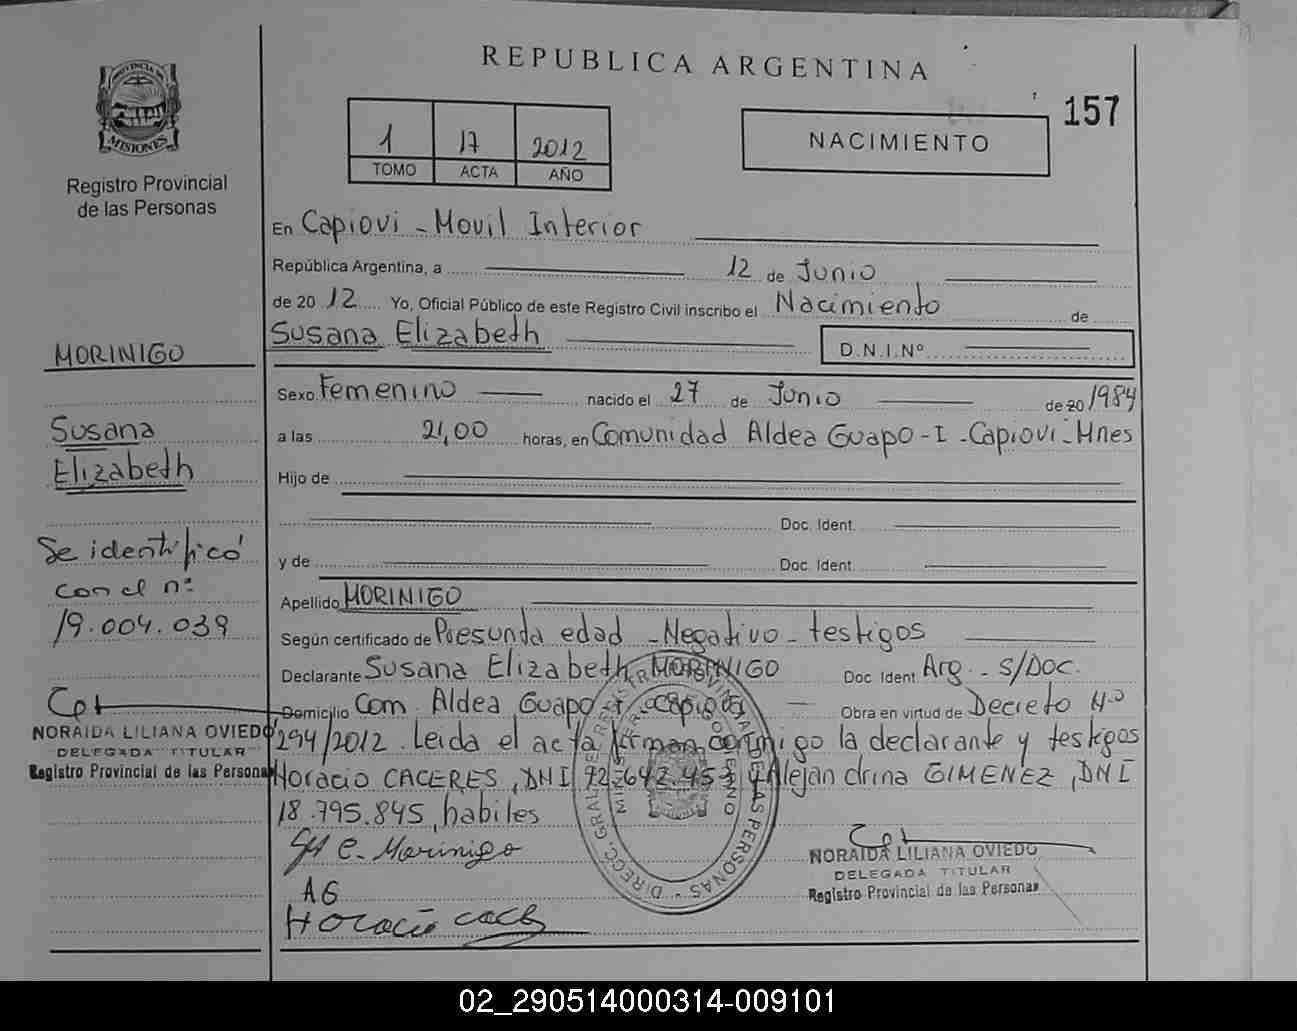 REPUBLICA ARGENTINA
157
PROVINCIA DE
MISIONES
Registro Provincial
de las Personas
1 17 2012
TOMO ACTA AÑO
NACIMIENTO
En Capiovi - Movil Interior
República Argentina, a 12 de Junio
de 20 12 Yo, Oficial Público de este Registro Civil inscribo el Nacimiento de
Susana Elizabeth D.N.I.Nº
Sexo Femenino nacido el 27 de Junio de 20 1984
a las 21,00 horas, en Comunidad Aldea Guapo-I - Capiovi - Mnes
Hijo de
Doc. Ident.
y de Doc. Ident.
Apellido MORINIGO
Según certificado de Presunta edad - Negativo - testigos
Declarante Susana Elizabeth MORINIGO Doc. Ident. Arg. - S/Doc.
Domicilio Com. Aldea Guapo I - Capiovi Obra en virtud de Decreto N.º
294/2012. Leida el acta firman conmigo la declarante y testigos
Horacio CACERES, DNI 92.642.453 y Alejandrina GIMENEZ, DNI
18.795.845, habiles
S E. Morinigo
AG
Horacio cace
NORAIDA LILIANA OVIEDO
DELEGADA TITULAR
Registro Provincial de las Personas
MORINIGO
Susana
Elizabeth
Se identificó
con el nº
19.004.039
NORAIDA LILIANA OVIEDO
DELEGADA TITULAR
Registro Provincial de las Persona
DIRECC. GRAL. REGISTRO PROVINCIAL DE LAS PERSONAS
02_290514000314-009101